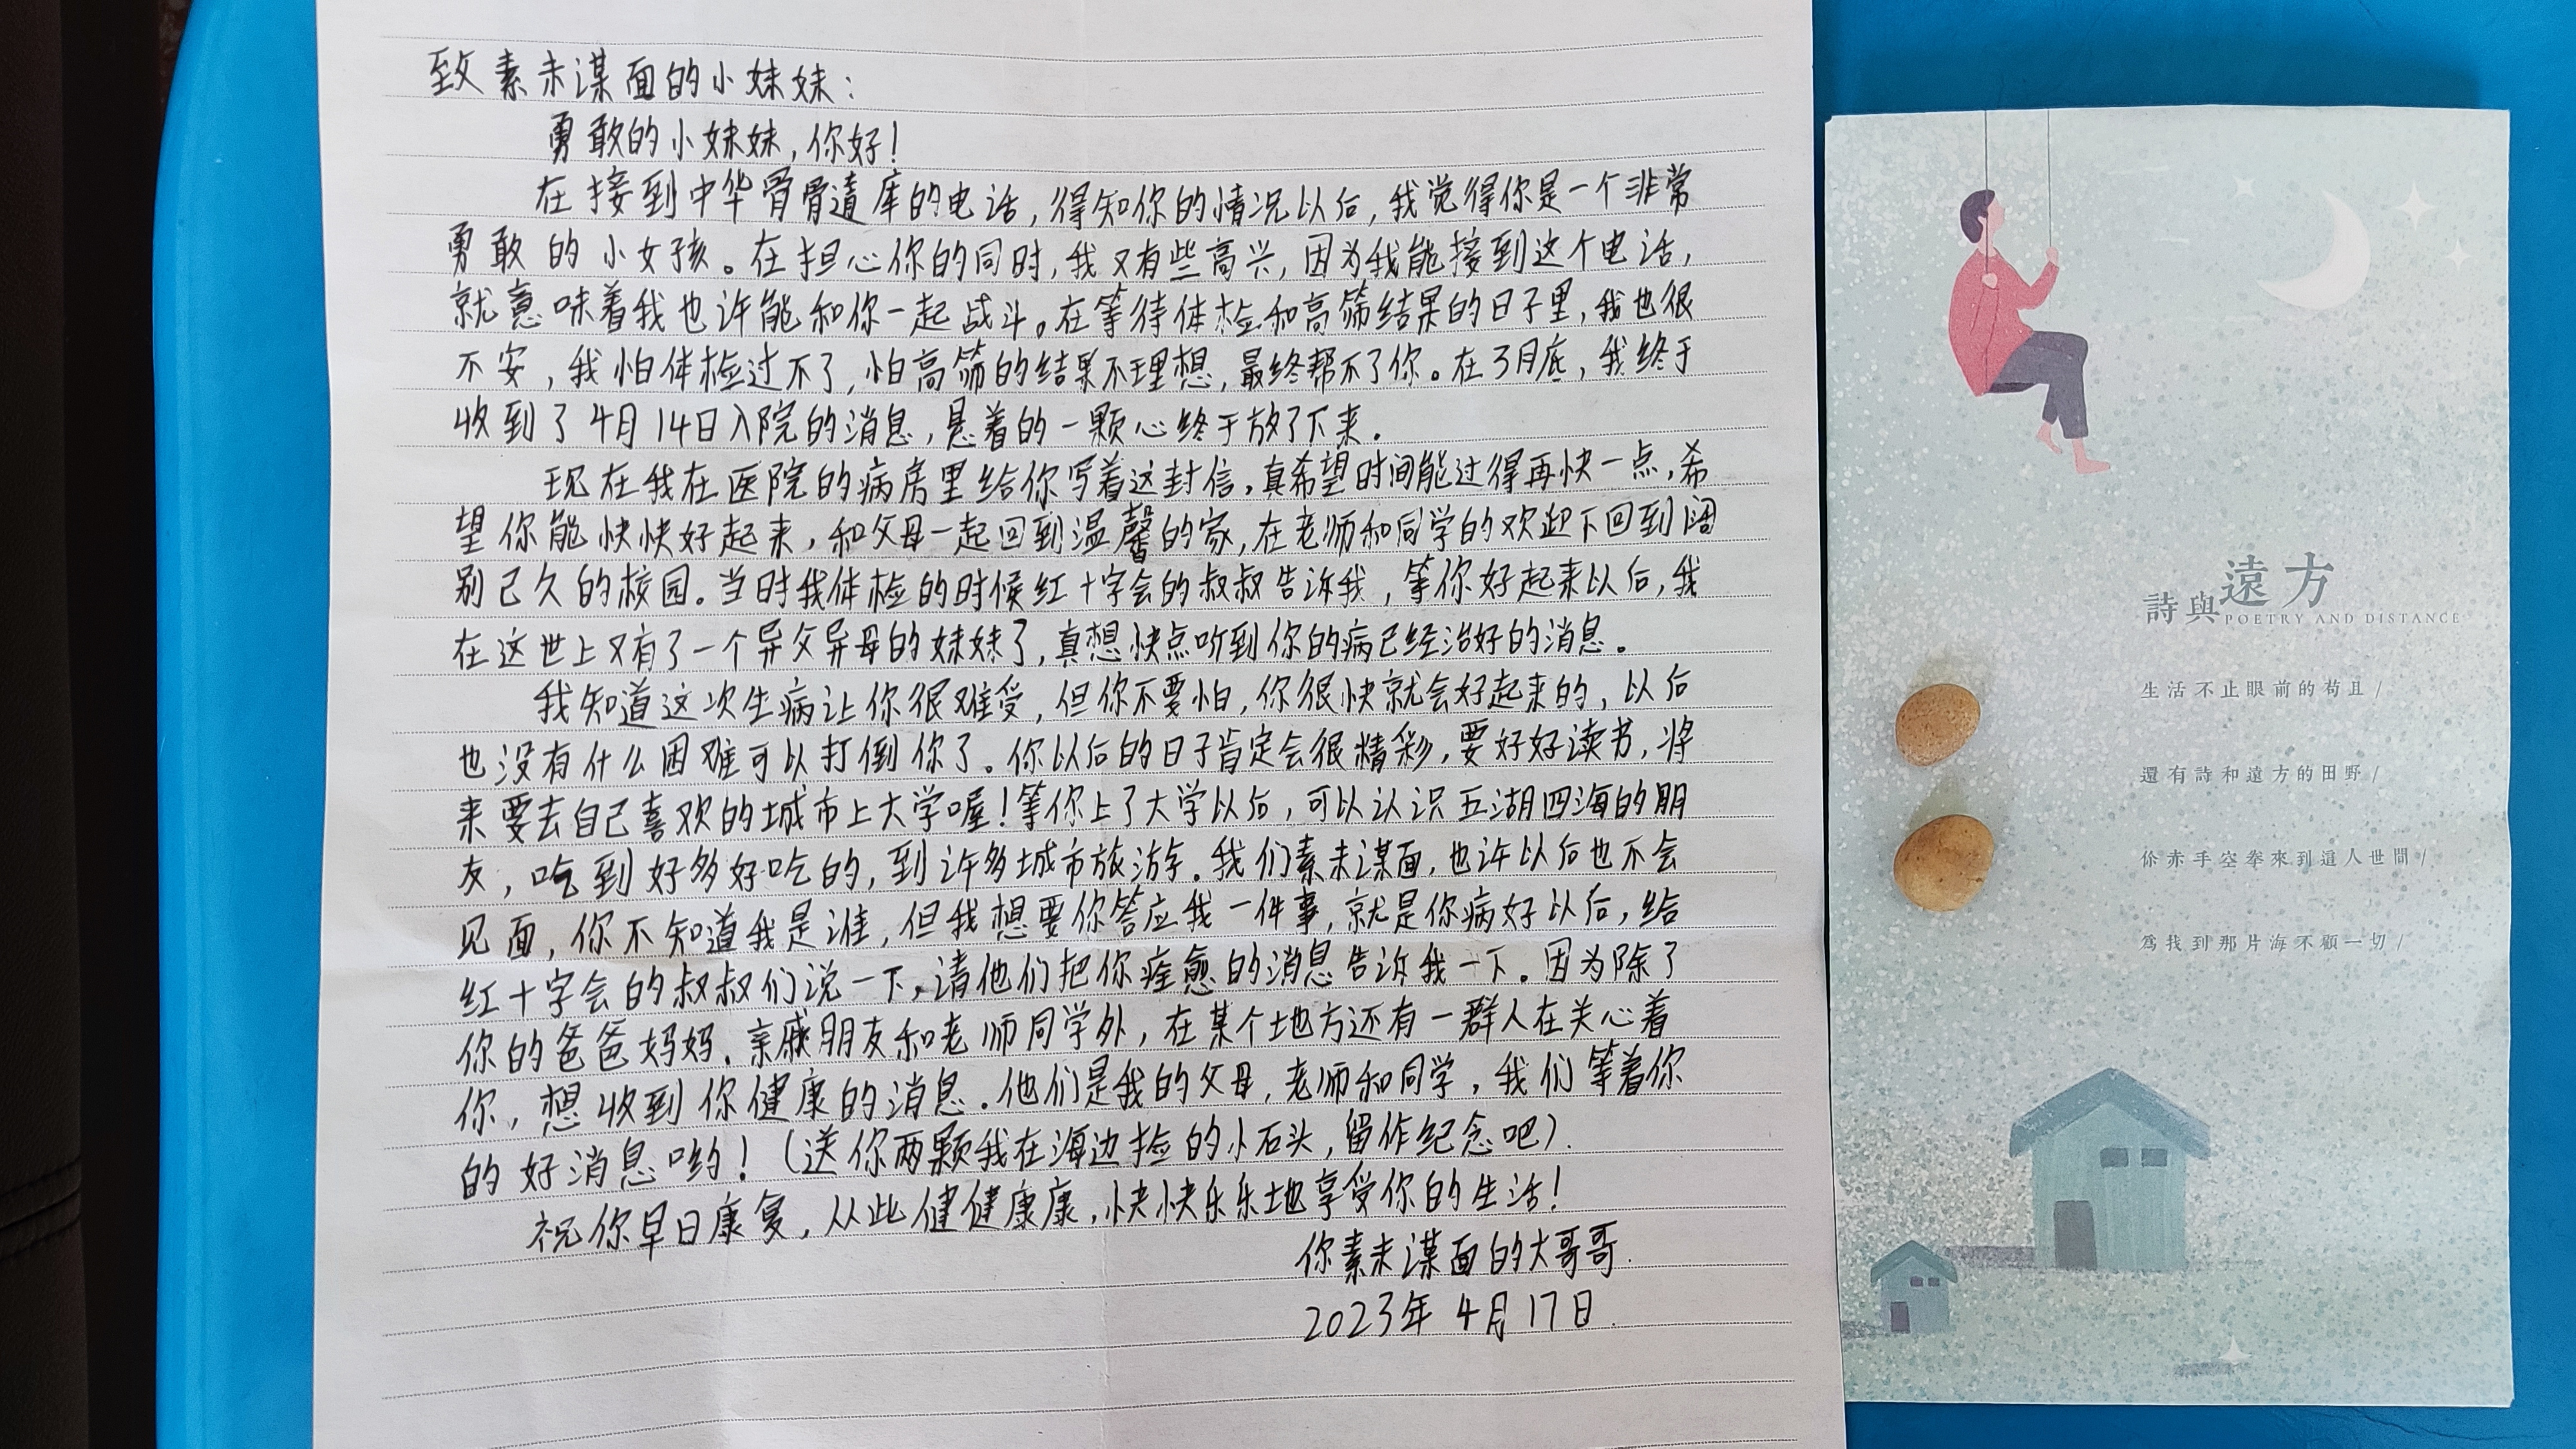 致素未谋面的小妹妹：
勇敢的小妹妹，你好！
在接到中华骨骨遺库的电话，得知你的情况以后，我觉得你是一个非常
勇敢的小女孩。在担心你的同时，我又有些高兴，因为我能接到这个电话，
就意味着我也许能和你一起战斗。在等待体检和高筛结果的日子里，我也很
不安，我怕体检过不了，怕高筛的结果不理想，最终帮不了你。在3月底，我终于
收到了4月14日入院的消息，悬着的一颗心终于放了下来。
现在我在医院的病房里给你写着这封信，真希望时间能过得再快一点，希
望你能快快好起来，和父母一起回到温馨的家，在老师和同学的欢迎下回到阔
别已久的校园。当时我体检的时候红十字会的叔叔告诉我，等你好起来以后，我
在这世上又有了一个异父异母的妹妹了，真想快点听到你的病已经治好的消息。
我知道这次生病让你很难受，但你不要怕，你很快就会好起来的，以后
也没有什么困难可以打倒你了。你以后的日子肯定会很精彩，要好好读书，将
来要去自己喜欢的城市上大学喔！等你上了大学以后，可以认识五湖四海的朋
友，吃到好多好吃的，到许多城市旅游。我们素未谋面，也许以后也不会
见面，你不知道我是谁，但我想要你答应我一件事，就是你病好以后，给
红十字会的叔叔们说一下，请他们把你痊愈的消息告诉我一下。因为除了
你的爸爸妈妈、亲戚朋友和老师同学外，在某个地方还有一群人在关心着
你，想收到你健康的消息。他们是我的父母，老师和同学，我们等着你
的好消息哟！（送你两颗我在海边捡的小石头，留作纪念吧）.
祝你早日康复，从此健健康康，快快乐乐地享受你的生活！
你素未谋面的大哥哥.
2023年4月17日.
詩與遠方
POETRY AND DISTANCE
生活不止眼前的苟且/
還有詩和遠方的田野/
你赤手空拳來到這人世間/
為找到那片海不顧一切/